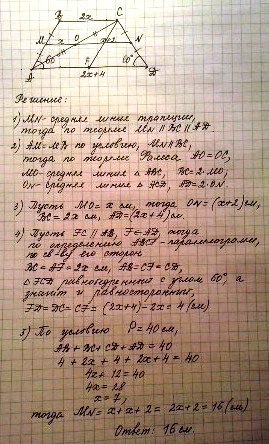 B 2x C
M x O x+2 N
60° 60°
A F D
2x+4
Решение:
1) MN - средняя линия трапеции,
тогда по теореме MN ∥ BC ∥ AD.
2) AM=MB по условию, MN∥BC,
тогда по теореме Фалеса AO=OC,
MO - средняя линия △ABC, BC=2·MO,
ON - средняя линия △ACD, AD=2·ON.
3) Пусть MO=x см, тогда ON=(x+2)см,
BC=2x см, AD=(2x+4)см.
4) Пусть FC∥AB, F∈AD, тогда
по определению ABCF - параллелограмм,
по св-ву его сторон
BC=AF=2x см, AB=CF=CD,
△FCD равнобедренный с углом 60° а
значит и равносторонний,
FD=DC=CF=(2x+4)-2x=4 (см)
5) По условию P=40см,
AB+BC+CD+AD=40
4+2x+4+2x+4=40
4x+12=40
4x=28
x=7,
тогда MN=x+x+2=2x+2=16(см)
Ответ: 16см.